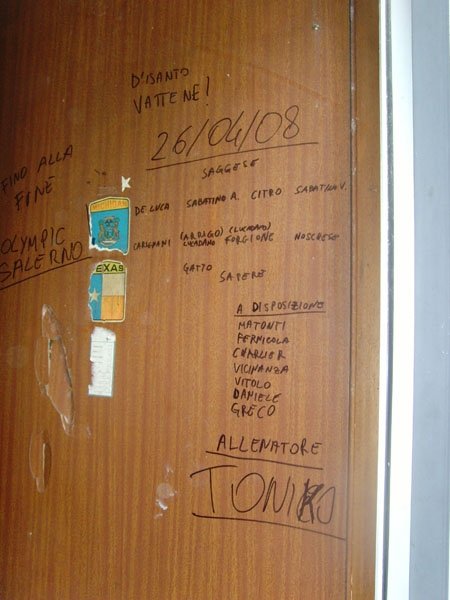 D'ISANTO
VATTENE!
26/04/08
FINO ALLA
FINE
OLYMPIC
SALERNO
SAGGESE
DE LUCA SABATINO A. CITRO SABATINO V.
CARIGNANI (ARRIGO) LUCIANO (LUCIANO) FORGIONE NOSCHESE
GATTO SAPERE
MICHIGAN
EXAS
A DISPOSIZIONE
MATONTI
FERMICOLA
CHARLIER
VICINANZA
VITOLO
DANIELE
GRECO
ALLENATORE